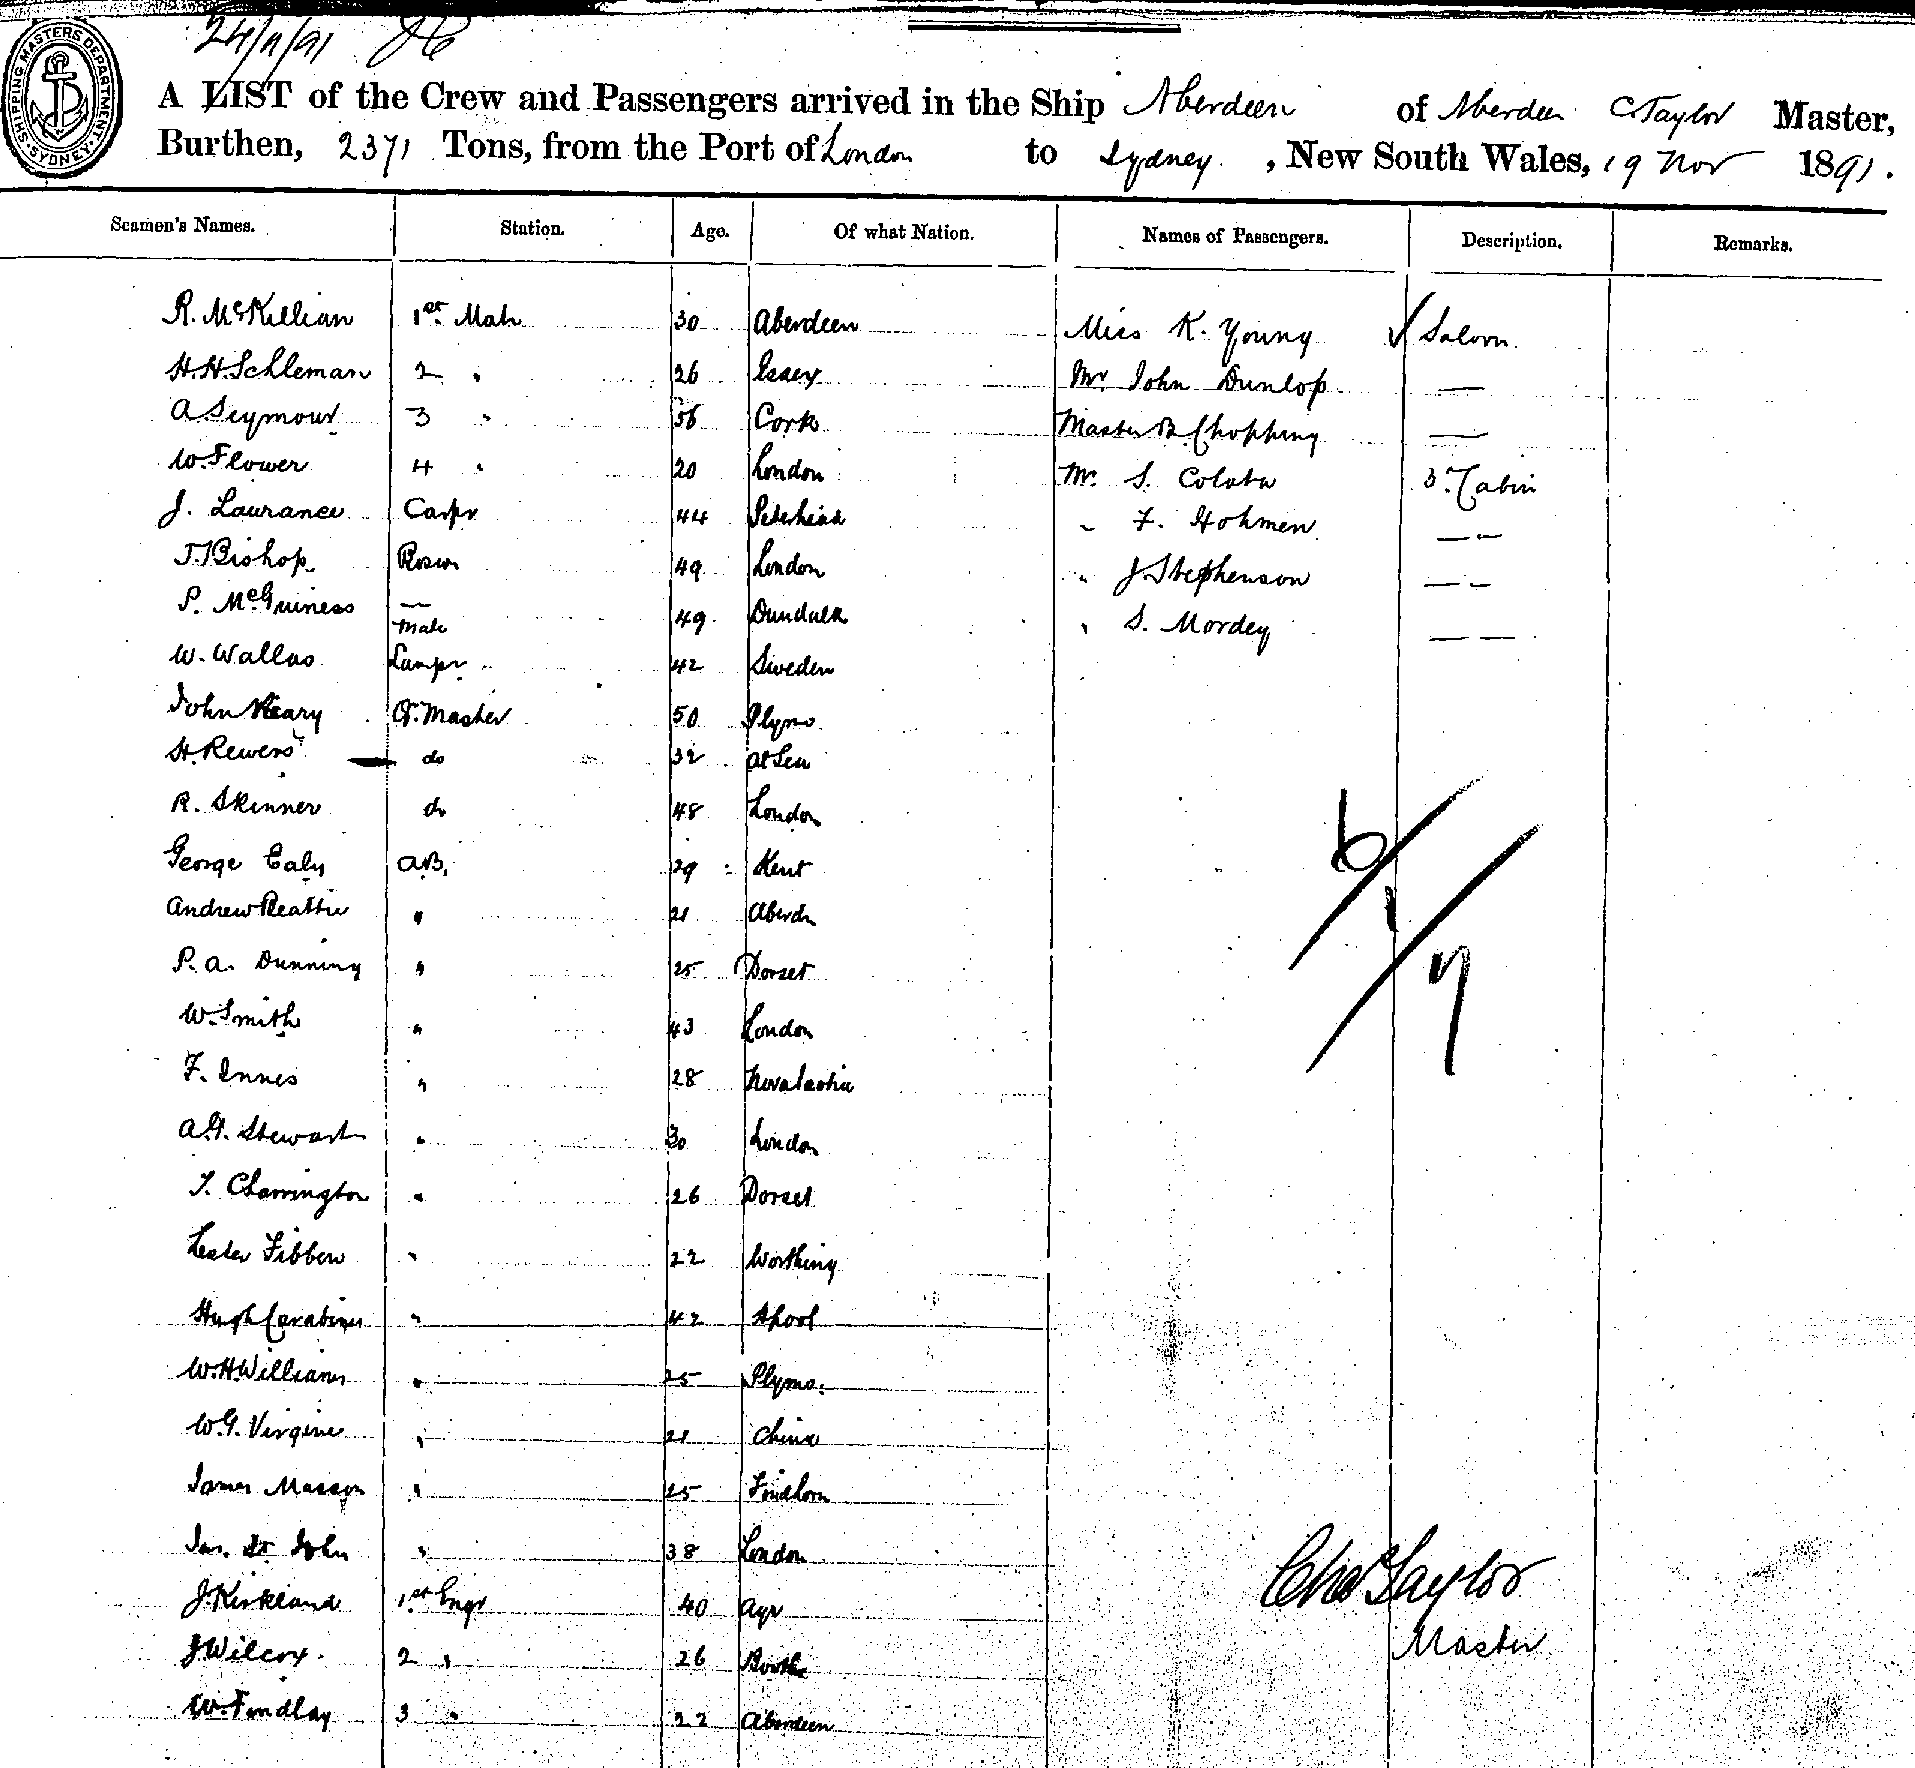 24/11/91
SHIPPING MASTERS DEPARTMENT SYDNEY
A LIST of the Crew and Passengers arrived in the Ship Aberdeen of Aberdeen C Taylor Master,
Burthen, 2371 Tons, from the Port of London to Sydney, New South Wales, 19 Nov 1891.
Seamen's Names. Station. Age. Of what Nation. Names of Passengers. Description. Remarks.
R. McKillian 1st Mate 30 Aberdeen Miss K. Young Saloon
H.H. Schleman 2 " 26 Essex Mr John Dunlop —
A Seymour 3 " 56 Cork Master B Chopping —
W. Flower 4 " 20 London Mr. S. 3rd Cabin
J. Laurance Carpr 44 Peterhead " F. Hohmen — —
T. Bishop Bosun 49 London " J Stephenson — —
P. McGuiness — Mate 49 Dundalk " S. Mordey — —
W. Wallas Lampr 42 Sweden
John Q. Master 50 Plymo
H. Rewers do 32 at Sea
R. Skinner do 48 London
George Ealy A.B. 29 Kent
Andrew Beattie " 21 Aberdn
P.A. Dunning " 25 Dorset
W. Smith " 43 London
F. Innes " 28 Novascotia
A.G. Stewart " 30 London
T. Charrington " 26 Dorset
Lester Fibben " 22 Worthing
Hugh " 42 Lpool
W.H. Williams " 25 Plymo.
W.G. Virgine " 21 China
James Masson " 25 Findhorn
Jas. St John " 38 London
J. Kirkland 1st Engr 40 Ayr
J Wilcox. 2 " 26 Bootle
W. Findlay 3 " 22 Aberdeen
6/1/7
Chas Taylor
Master